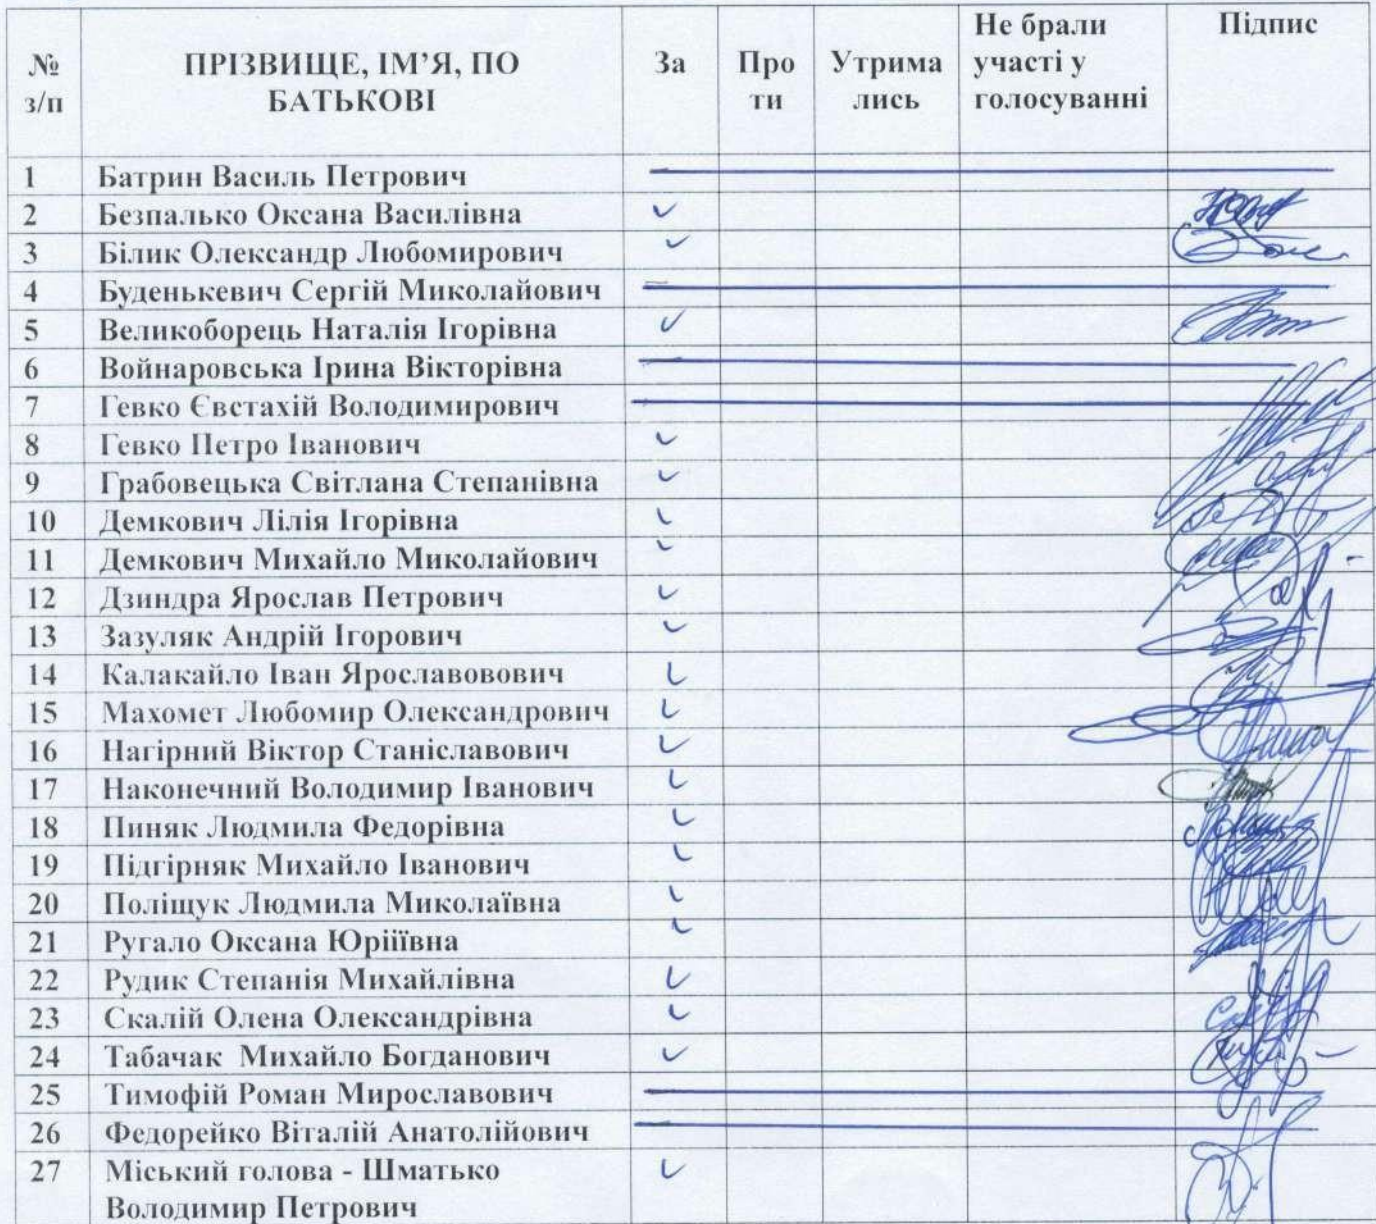 № з/п ПРІЗВИЩЕ, ІМ’Я, ПО БАТЬКОВІ За Про ти Утрима лись Не брали участі у голосуванні Підпис
1 Батрин Василь Петрович
2 Безпалько Оксана Василівна
3 Білик Олександр Любомирович
4 Буденькевич Сергій Миколайович
5 Великоборець Наталія Ігорівна
6 Войнаровська Ірина Вікторівна
7 Гевко Євстахій Володимирович
8 Гевко Петро Іванович
9 Грабовецька Світлана Степанівна
10 Демкович Лілія Ігорівна
11 Демкович Михайло Миколайович
12 Дзиндра Ярослав Петрович
13 Зазуляк Андрій Ігорович
14 Калакайло Іван Ярославовович
15 Махомет Любомир Олександрович
16 Нагірний Віктор Станіславович
17 Наконечний Володимир Іванович
18 Пиняк Людмила Федорівна
19 Підгірняк Михайло Іванович
20 Поліщук Людмила Миколаївна
21 Ругало Оксана Юріїівна
22 Рудик Степанія Михайлівна
23 Скалій Олена Олександрівна
24 Табачак Михайло Богданович
25 Тимофій Роман Мирославович
26 Федорейко Віталій Анатолійович
27 Міський голова - Шматько
Володимир Петрович